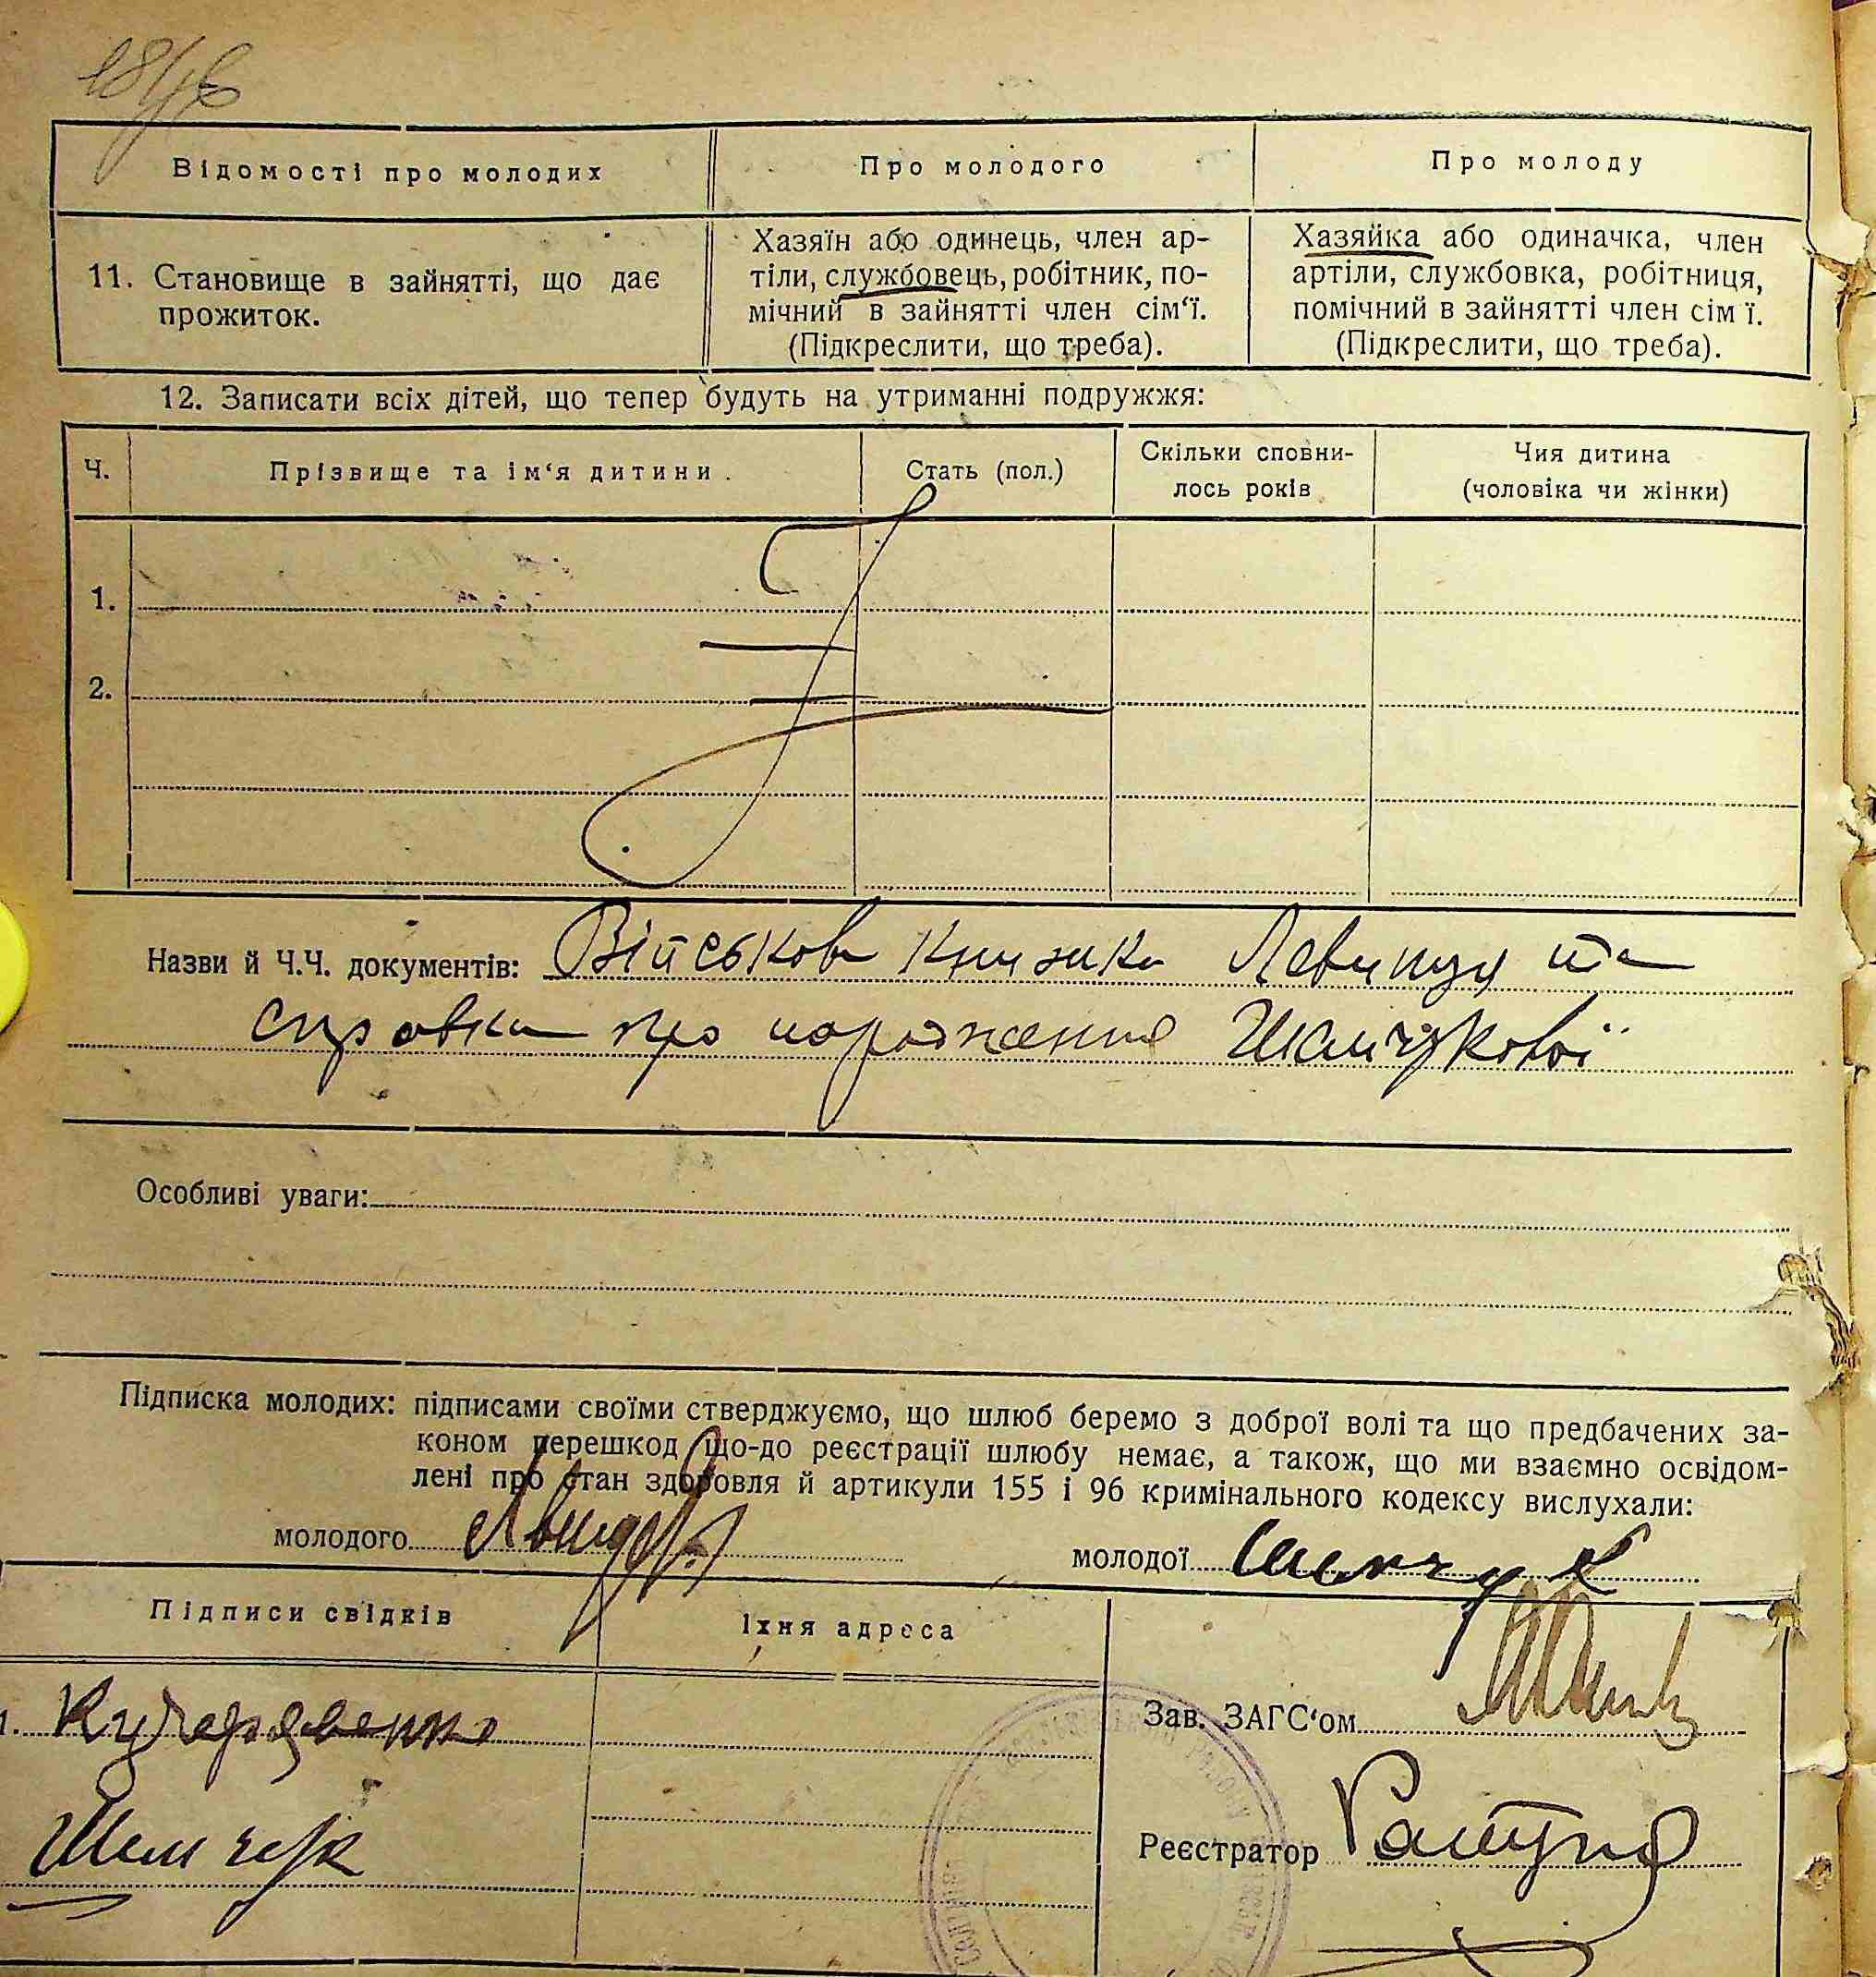 Відомості про молодих
Про молодого
Про молоду
11. Становище в зайнятті, що дає
прожиток.
Хазяїн або одинець, член ар-
тіли, службовець, робітник, по-
мічний в зайнятті член сім‘ї.
(Підкреслити, що треба).
Хазяйка або одиначка, член
артіли, службовка, робітниця,
помічний в зайнятті член сім ї.
(Підкреслити, що треба).
12. Записати всіх дітей, що тепер будуть на утриманні подружжя:
Ч.
Прізвище та ім‘я дитини.
Стать (пол.)
Скільки сповни-
лось років
Чия дитина
(чоловіка чи жінки)
1.
2.
Назви й Ч.Ч. документів: Військова книжка та
справка про народження Шемчукової
Особливі уваги:
Підписка молодих: підписами своїми стверджуємо, що шлюб беремо з доброї волі та що предбачених за-
коном перешкод що-до реєстрації шлюбу немає, а також, що ми взаємно освідом-
лені про стан здоровля й артикули 155 і 96 кримінального кодексу вислухали:
молодого
молодої Шемчук
Підписи свідків
Їхня адреса
1. Кучерявенко
Шемчук
Зав. ЗАГС‘ом
Реєстратор